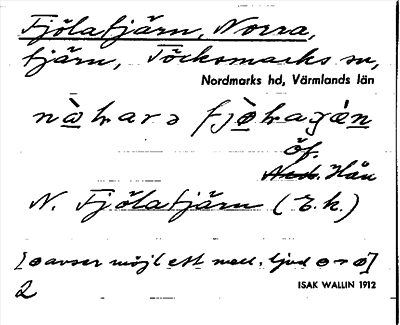 Fjölatjärn, Norra,
tjärn, Töcksmarks sn,
Nordmarks hd, Värmlands län
öf.
Ned. Hån
N. Fjölatjärn (E.k.)
[ɵ avser möjl ett mell. ljud
2
ISAK WALLIN 1912